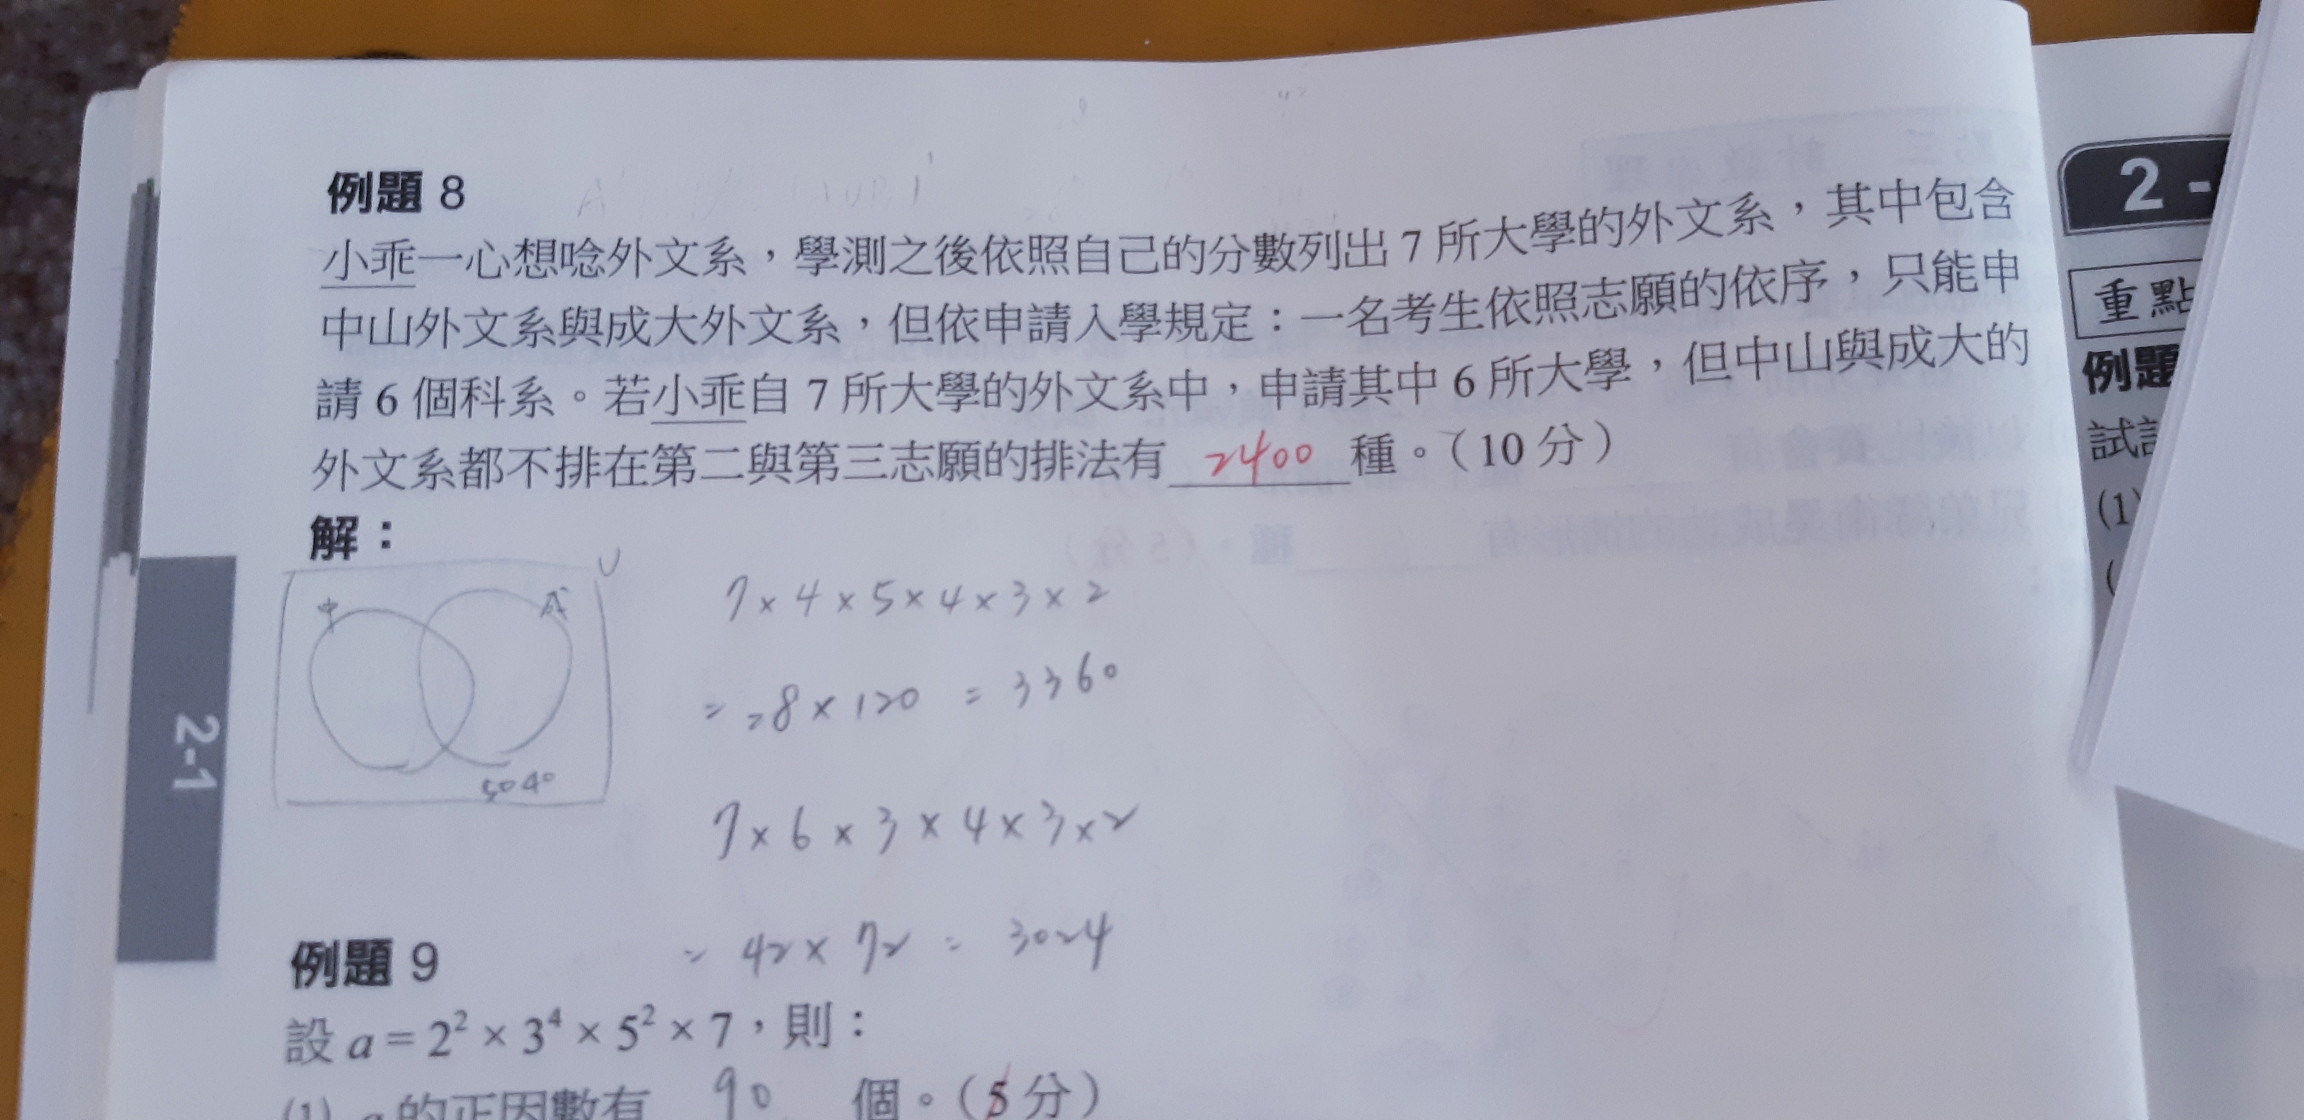 例題 8
小乖一心想唸外文系，學測之後依照自己的分數列出 7 所大學的外文系，其中包含
中山外文系與成大外文系，但依申請入學規定：一名考生依照志願的依序，只能申
請 6 個科系。若小乖自 7 所大學的外文系中，申請其中 6 所大學，但中山與成大的
外文系都不排在第二與第三志願的排法有 2400 種。（10 分）
解：
U
中
5040
7×4×5×4×3×2
=28×120=3360
7×6×3×4×3×2
=42×72=3024
例題 9
設 a = 2² × 3⁴ × 5² × 7，則：
(1) a 的正因數有 90 個。（5 分）
2-1
2-
重點
例題
試
(1)
(